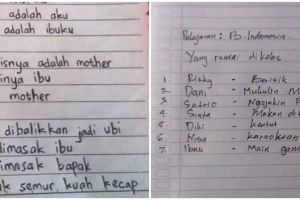 adalah aku
adalah ibuku
isnya adalah mother
inya ibu
mother
dibalikkan jadi ubi
dimasak ibu
imasak bapak
ak semur, kuah kecap
Pelajaran : B. Indonesia
Yang ramai di kelas
1. Rizky - Berisik
2. Dani - Mukulin M
3. Satrio - Ngajakin
4. Sinta - Makan di k
5. Diki - kentut
6. Nisa - karaokean
7. Ibnu - Main gam